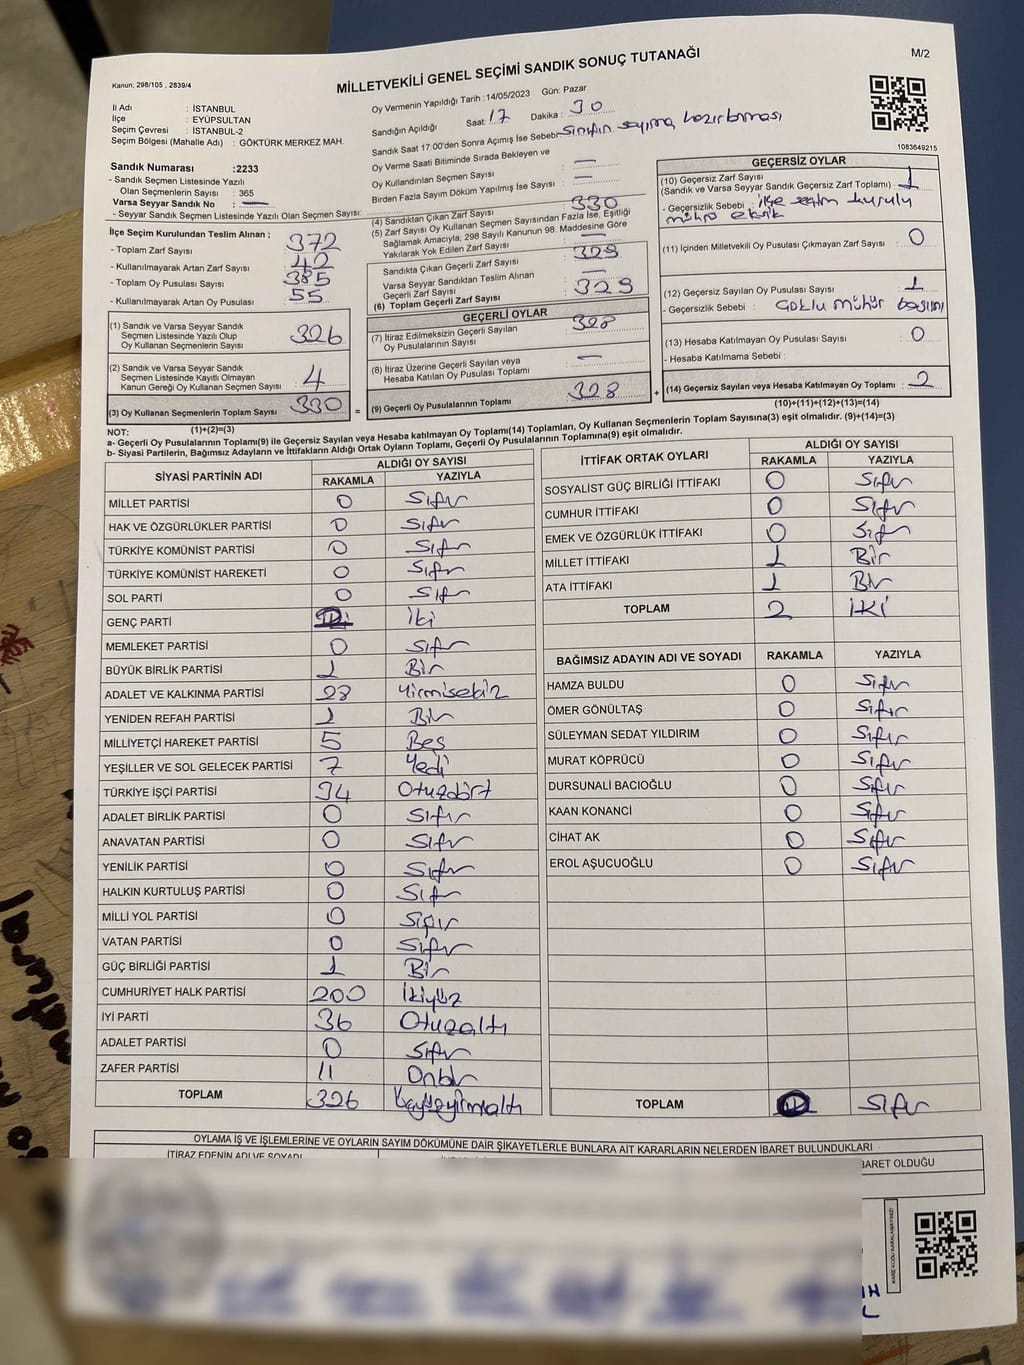 Kanun: 298/105 , 2839/4
MİLLETVEKİLİ GENEL SEÇİMİ SANDIK SONUÇ TUTANAĞI
M/2
İl Adı : İSTANBUL
İlçe : EYÜPSULTAN
Seçim Çevresi : İSTANBUL-2
Seçim Bölgesi (Mahalle Adı) : GÖKTÜRK MERKEZ MAH.
Sandık Numarası :2233
- Sandık Seçmen Listesinde Yazılı
Olan Seçmenlerin Sayısı : 365
Varsa Seyyar Sandık No : —
- Seyyar Sandık Seçmen Listesinde Yazılı Olan Seçmen Sayısı:
Oy Vermenin Yapıldığı Tarih :14/05/2023 Gün: Pazar
Sandığın Açıldığı Saat: 17 Dakika : 30
Sandık Saat 17:00'den Sonra Açımış İse Sebebi: Sınıfın sayıma hazırlanması
Oy Verme Saati Bitiminde Sırada Bekleyen ve
Oy Kullandırılan Seçmen Sayısı —
Birden Fazla Sayım Döküm Yapılmış İse Sayısı —
1083649215
İlçe Seçim Kurulundan Teslim Alınan ;
- Toplam Zarf Sayısı : 372
- Kullanılmayarak Artan Zarf Sayısı : 42
- Toplam Oy Pusulası Sayısı : 385
- Kullanılmayarak Artan Oy Pusulası : 55
(1) Sandık ve Varsa Seyyar Sandık
Seçmen Listesinde Yazılı Olup
Oy Kullanan Seçmenlerin Sayısı : 326
(2) Sandık ve Varsa Seyyar Sandık
Seçmen Listesinde Kayıtlı Olmayan
Kanun Gereği Oy Kullanan Seçmen Sayısı : 4
(3) Oy Kullanan Seçmenlerin Toplam Sayısı : 330
(1)+(2)=(3)
(4) Sandıktan Çıkan Zarf Sayısı 330
(5) Zarf Sayısı Oy Kullanan Seçmen Sayısından Fazla İse, Eşitliği
Sağlamak Amacıyla, 298 Sayılı Kanunun 98. Maddesine Göre
Yakılarak Yok Edilen Zarf Sayısı —
Sandıkta Çıkan Geçerli Zarf Sayısı : 329
Varsa Seyyar Sandıktan Teslim Alınan
Geçerli Zarf Sayısı : —
(6) Toplam Geçerli Zarf Sayısı : 329
GEÇERLİ OYLAR
(7) İtiraz Edilmeksizin Geçerli Sayılan
Oy Pusulalarının Sayısı : 328
(8) İtiraz Üzerine Geçerli Sayılan veya
Hesaba Katılan Oy Pusulası Toplamı : —
= (9) Geçerli Oy Pusulalarının Toplamı : 328 +
GEÇERSİZ OYLAR
(10) Geçersiz Zarf Sayısı
(Sandık ve Varsa Seyyar Sandık Geçersiz Zarf Toplamı) : 1
- Geçersizlik Sebebi : ilçe seçim kurulu
mührü eksik
(11) İçinden Milletvekili Oy Pusulası Çıkmayan Zarf Sayısı : 0
(12) Geçersiz Sayılan Oy Pusulası Sayısı : 1
- Geçersizlik Sebebi : Çoklu mühür basımı
(13) Hesaba Katılmayan Oy Pusulası Sayısı : 0
- Hesaba Katılmama Sebebi :
(14) Geçersiz Sayılan veya Hesaba Katılmayan Oy Toplamı : 2
(10)+(11)+(12)+(13)=(14)
NOT:
a- Geçerli Oy Pusulalarının Toplamı(9) ile Geçersiz Sayılan veya Hesaba katılmayan Oy Toplamı(14) Toplamları, Oy Kullanan Seçmenlerin Toplam Sayısına(3) eşit olmalıdır. (9)+(14)=(3)
b- Siyasi Partilerin, Bağımsız Adayların ve İttifakların Aldığı Ortak Oyların Toplamı, Geçerli Oy Pusulalarının Toplamına(9) eşit olmalıdır.
SİYASİ PARTİNİN ADI ALDIĞI OY SAYISI
RAKAMLA YAZIYLA
MİLLET PARTİSİ 0 Sıfır
HAK VE ÖZGÜRLÜKLER PARTİSİ 0 Sıfır
TÜRKİYE KOMÜNİST PARTİSİ 0 Sıfır
TÜRKİYE KOMÜNİST HAREKETİ 0 Sıfır
SOL PARTİ 0 Sıfır
GENÇ PARTİ İki
MEMLEKET PARTİSİ 0 Sıfır
BÜYÜK BİRLİK PARTİSİ 1 Bir
ADALET VE KALKINMA PARTİSİ 28 Yirmisekiz
YENİDEN REFAH PARTİSİ 1 Bir
MİLLİYETÇİ HAREKET PARTİSİ 5 Beş
YEŞİLLER VE SOL GELECEK PARTİSİ 7 Yedi
TÜRKİYE İŞÇİ PARTİSİ 34 Otuzdört
ADALET BİRLİK PARTİSİ 0 Sıfır
ANAVATAN PARTİSİ 0 Sıfır
YENİLİK PARTİSİ 0 Sıfır
HALKIN KURTULUŞ PARTİSİ 0 Sıfır
MİLLİ YOL PARTİSİ 0 Sıfır
VATAN PARTİSİ 0 Sıfır
GÜÇ BİRLİĞİ PARTİSİ 1 Bir
CUMHURİYET HALK PARTİSİ 200 İkiyüz
İYİ PARTİ 36 Otuzaltı
ADALET PARTİSİ 0 Sıfır
ZAFER PARTİSİ 11 Onbir
TOPLAM 326
İTTİFAK ORTAK OYLARI ALDIĞI OY SAYISI
RAKAMLA YAZIYLA
SOSYALİST GÜÇ BİRLİĞİ İTTİFAKI 0 Sıfır
CUMHUR İTTİFAKI 0 Sıfır
EMEK VE ÖZGÜRLÜK İTTİFAKI 0 Sıfır
MİLLET İTTİFAKI 1 Bir
ATA İTTİFAKI 1 Bir
TOPLAM 2 İKİ
BAĞIMSIZ ADAYIN ADI VE SOYADI RAKAMLA YAZIYLA
HAMZA BULDU 0 Sıfır
ÖMER GÖNÜLTAŞ 0 Sıfır
SÜLEYMAN SEDAT YILDIRIM 0 Sıfır
MURAT KÖPRÜCÜ 0 Sıfır
DURSUNALİ BACIOĞLU 0 Sıfır
KAAN KONANCİ 0 Sıfır
CİHAT AK 0 Sıfır
EROL AŞUCUOĞLU 0 Sıfır
TOPLAM Sıfır
OYLAMA İŞ VE İŞLEMLERİNE VE OYLARIN SAYIM DÖKÜMÜNE DAİR ŞİKAYETLERLE BUNLARA AİT KARARLARIN NELERDEN İBARET BULUNDUKLARI
İTİRAZ EDENİN ADI VE SOYADI
BARET OLDUĞU
KARE KODU KARALAMAYINIZ!